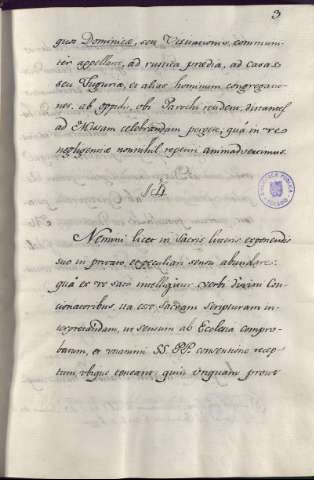 3
quas Dominicæ, seu Vexationis, commun-
ter appellant, ad rustica prædia, ad casas
seu Tuguria, et alias hominum congregatio-
nes, ab oppidis, ubi Parrochi resident, distantes
ad Missam celebrandam pergere, qua in re
negligentiæ nonnihil repetui animadvertimus.
§ 4
Nemini licet in Sacris litteris exponendis
suo in privato, et peculiari sensu abundare:
qua ex re sciant intelligantur verbi divini Con-
cionatoribus, ita esse Sacram Scripturam in-
terpretandam, ut sensum ab Ecclesia compro-
batum, et unanimi SS. P.P. consensione recep-
tum, ubique teneant: quin unquam prout
BIBLIOTECA PUBLICA
TOLEDO